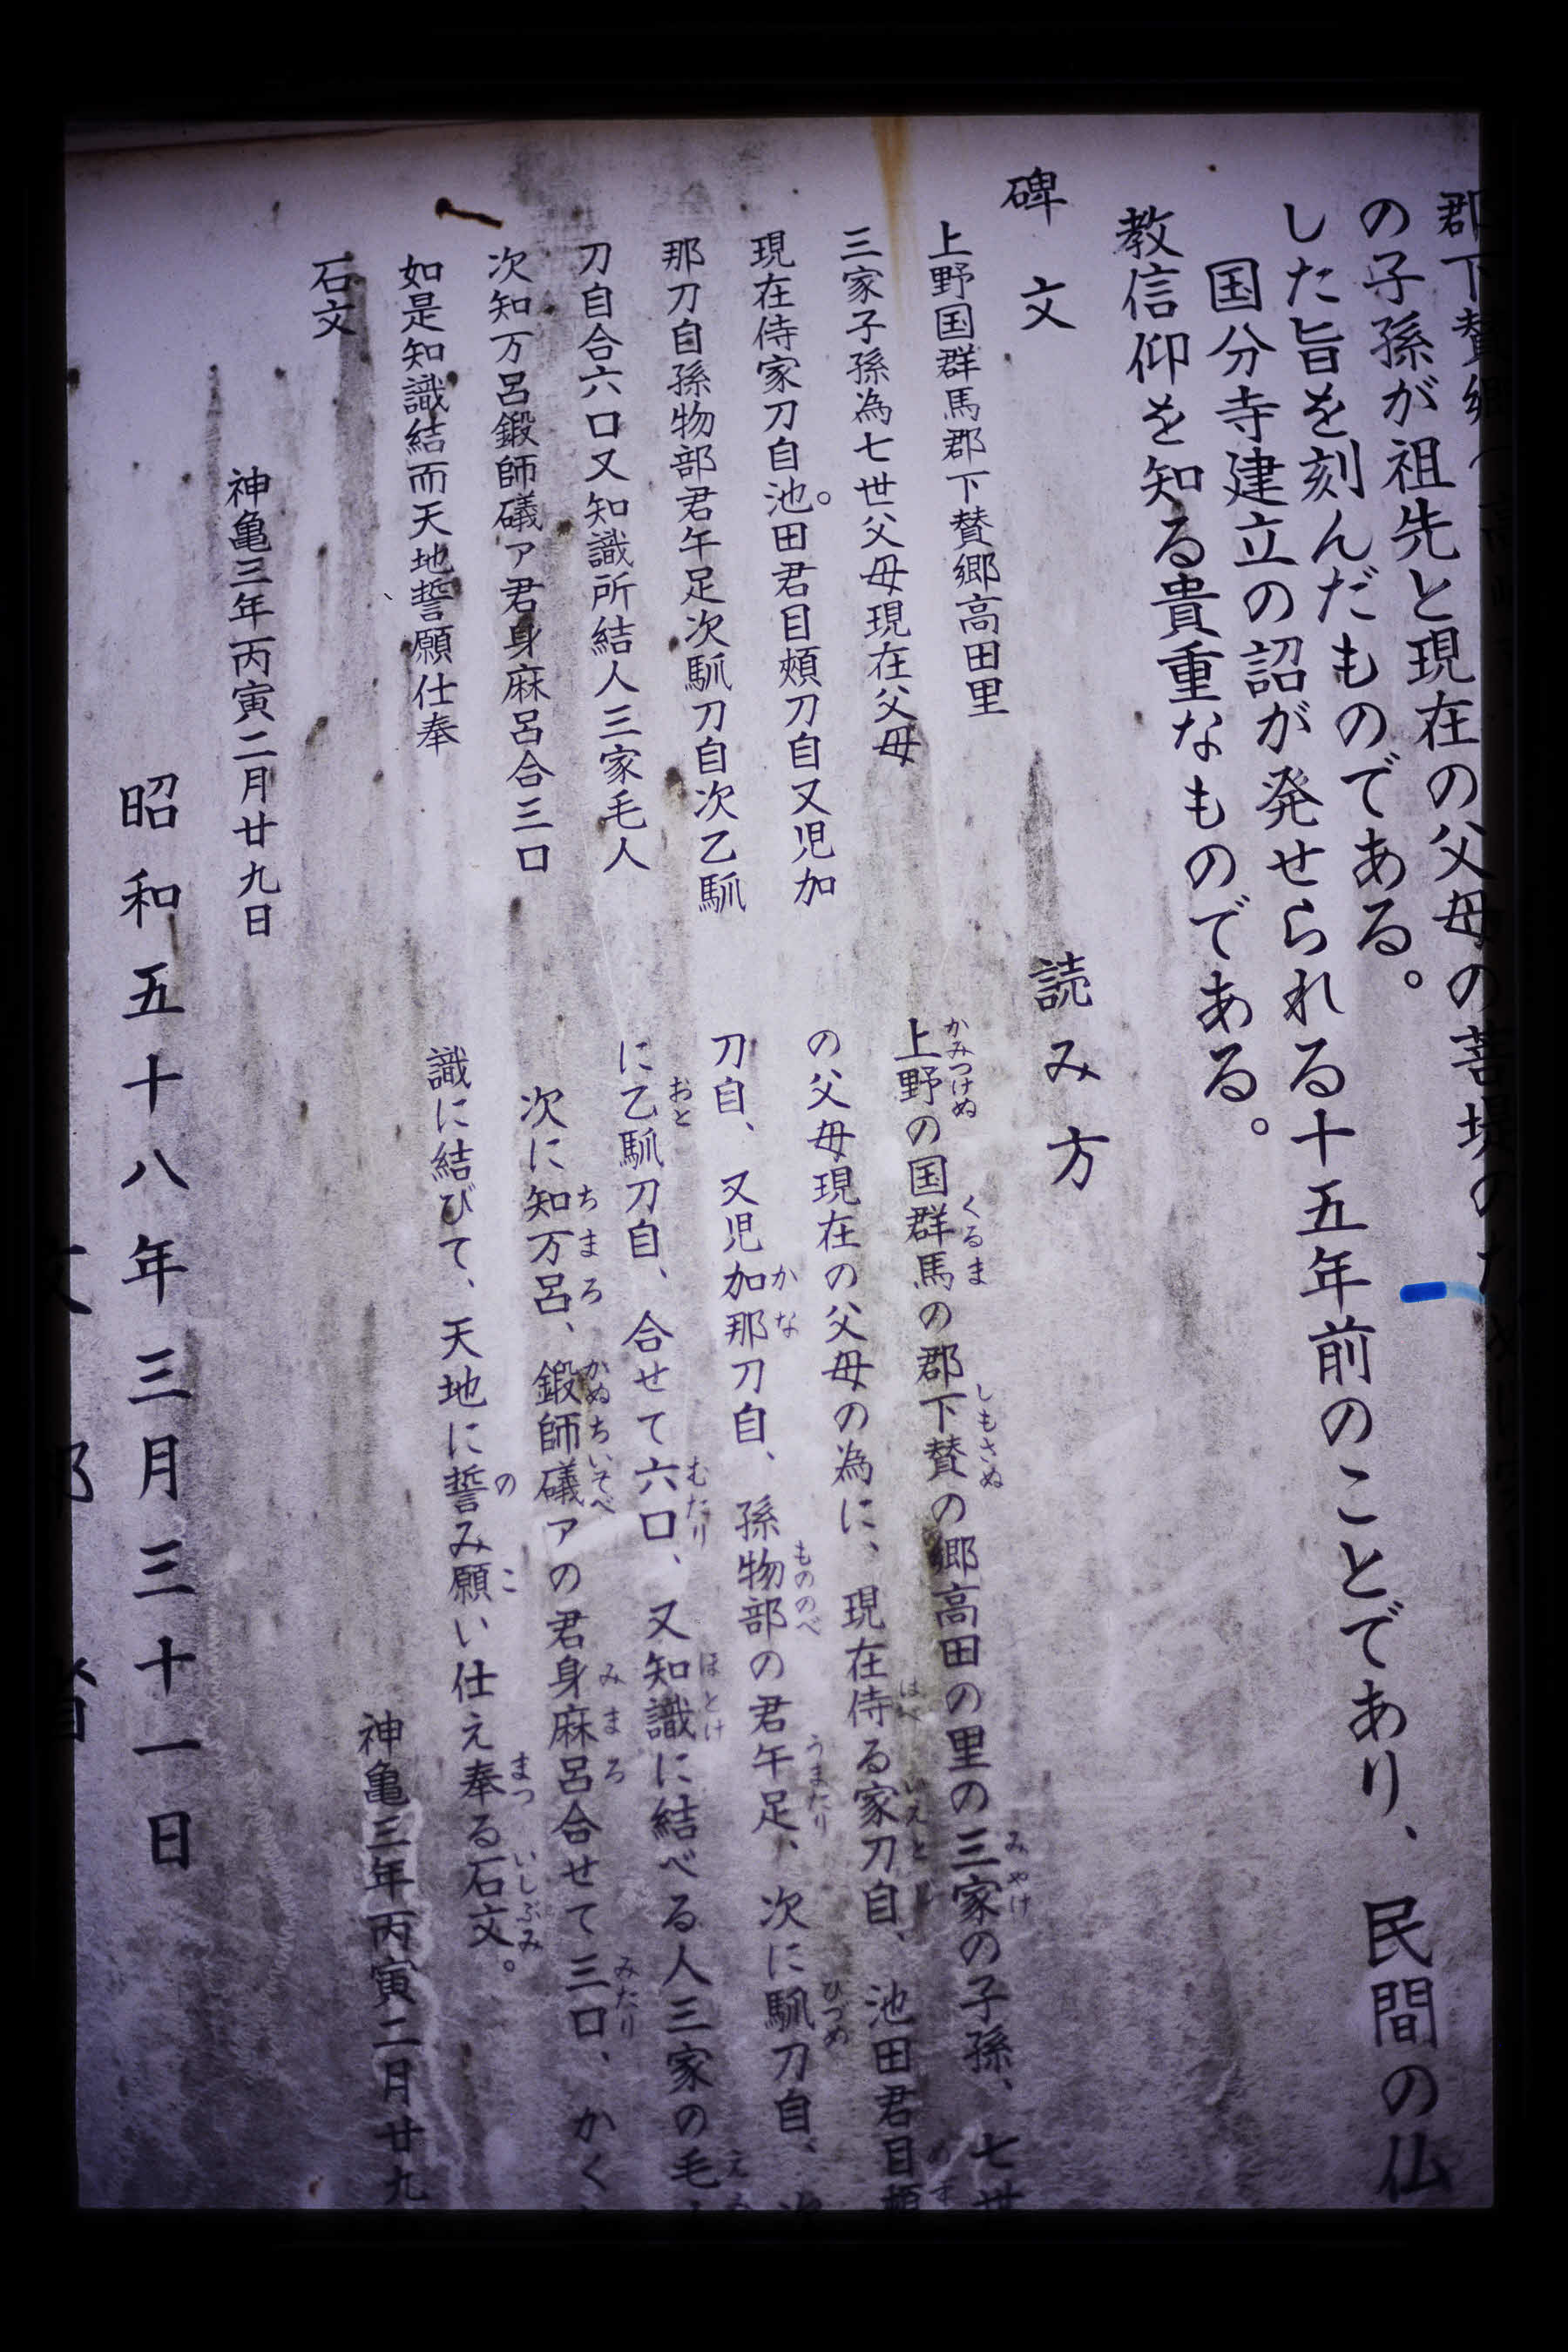 郡下賛郷
の子孫が祖先と現在の父母の菩提の
した旨を刻んだものである。
国分寺建立の詔が発せられる十五年前のことであり、民間の仏
教信仰を知る貴重なものである。
碑文
上野国群馬郡下賛郷高田里
三家子孫為七世父母現在父母
現在侍家刀自池田君目頬刀自又児加
那刀自孫物部君午足次馴刀自次乙馴
刀自合六口又知識所結人三家毛人
次知万呂鍛師礒ア君身麻呂合三口
如是知識結而天地誓願仕奉
石文
神亀三年丙寅二月廿九日
読み方
上野の国群馬の郡下賛の郷高田の里の三家の子孫、七世
かみつけぬ くるま しもさぬ みやけ
の父母現在の父母の為に、現在侍る家刀自、池田君目頬
はべ いえと
刀自、又児加那刀自、孫物部の君午足、次に馴刀自、次
かな もののべ うまたり ひづめ
に乙馴刀自、合せて六口、又知識に結べる人三家の毛
おと むたり ほとけ
次に知万呂、鍛師礒アの君身麻呂合せて三口、かく
ちまろ かぬちいそべ みまろ みたり
識に結びて、天地に誓み願い仕え奉る石文。
の こ まつ いしぶみ
神亀三年丙寅二月廿九
昭和五十八年三月三十一日